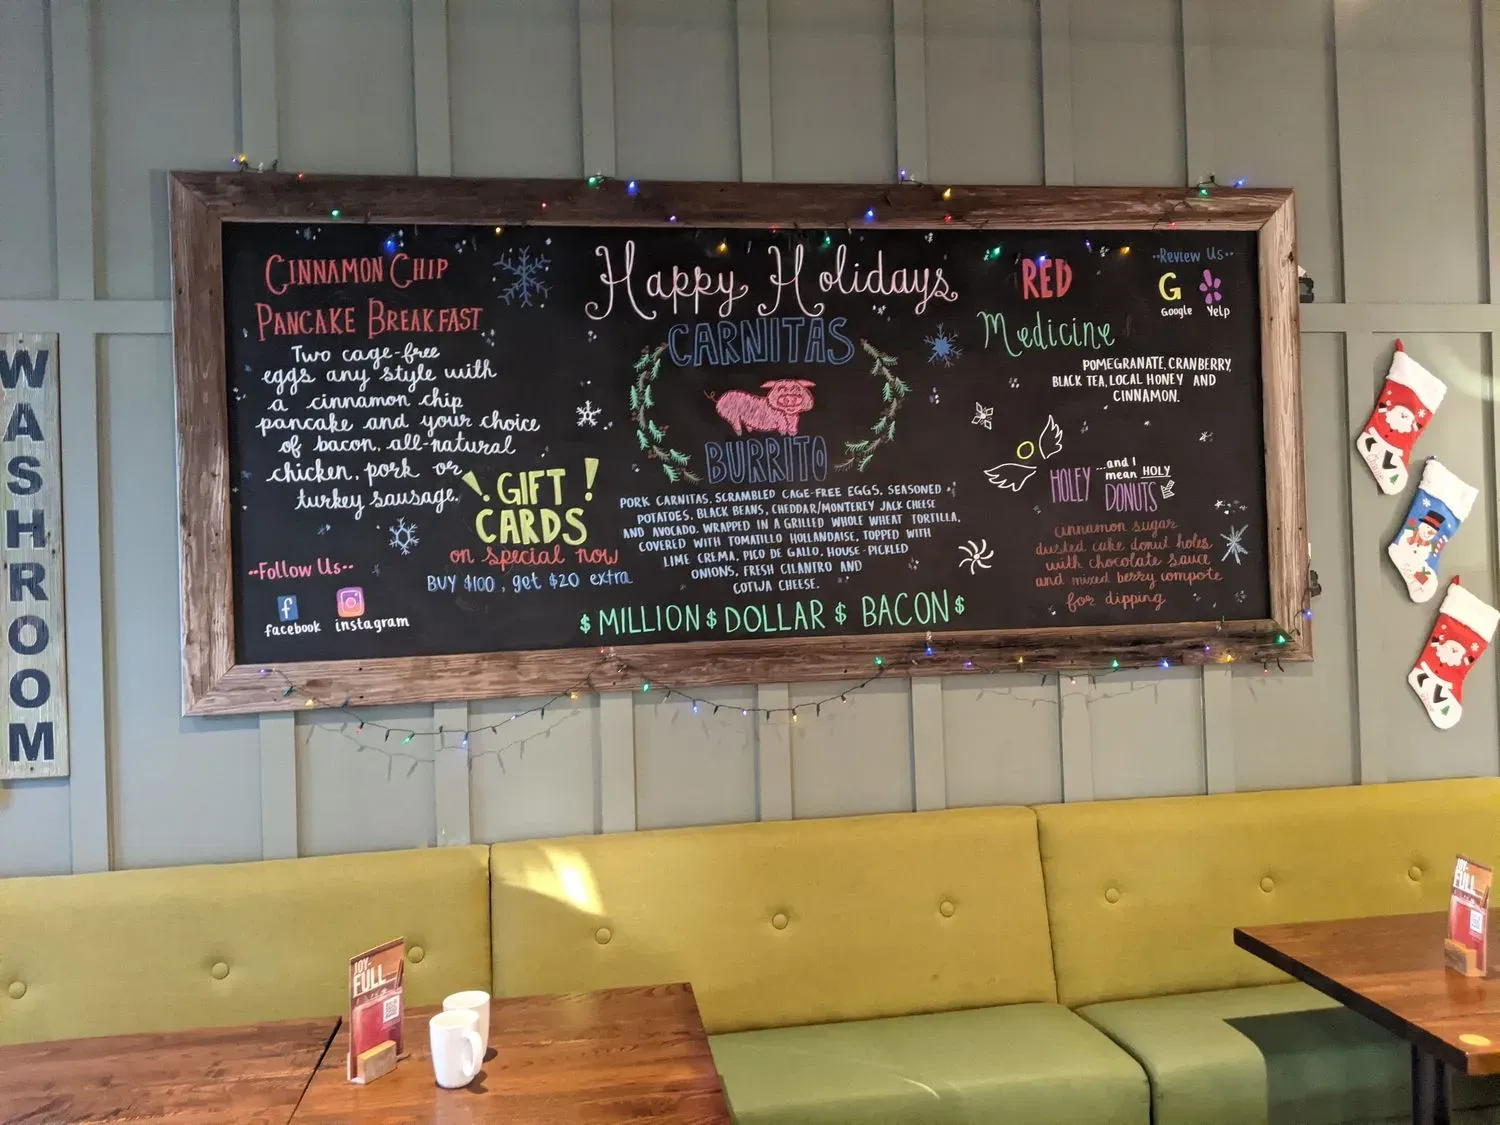 WASHROOM
CINNAMON CHIP
PANCAKE BREAKFAST
Two cage-free
eggs any style with
a cinnamon chip
pancake and your choice
of bacon, all-natural
chicken, pork or
turkey sausage.
GIFT !
CARDS
on special now
BUY $100, get $20 extra
··Follow Us··
f
facebook
instagram
Happy Holidays
CARNITAS
BURRITO
PORK CARNITAS, SCRAMBLED CAGE-FREE EGGS, SEASONED
POTATOES, BLACK BEANS, CHEDDAR/MONTEREY JACK CHEESE
AND AVOCADO. WRAPPED IN A GRILLED WHOLE WHEAT TORTILLA,
COVERED WITH TOMATILLO HOLLANDAISE, TOPPED WITH
LIME CREMA, PICO DE GALLO, HOUSE-PICKLED
ONIONS, FRESH CILANTRO AND
COTIJA CHEESE.
$ MILLION $ DOLLAR $ BACON $
RED
Medicine
POMEGRANATE, CRANBERRY,
BLACK TEA, LOCAL HONEY AND
CINNAMON.
··Review Us··
G
Google
Yelp
HOLEY
...and I
mean HOLY
DONUTS
cinnamon sugar
dusted cake donut holes
with chocolate sauce
and mixed berry compote
for dipping
JOY-
FULL
JOY-
FULL